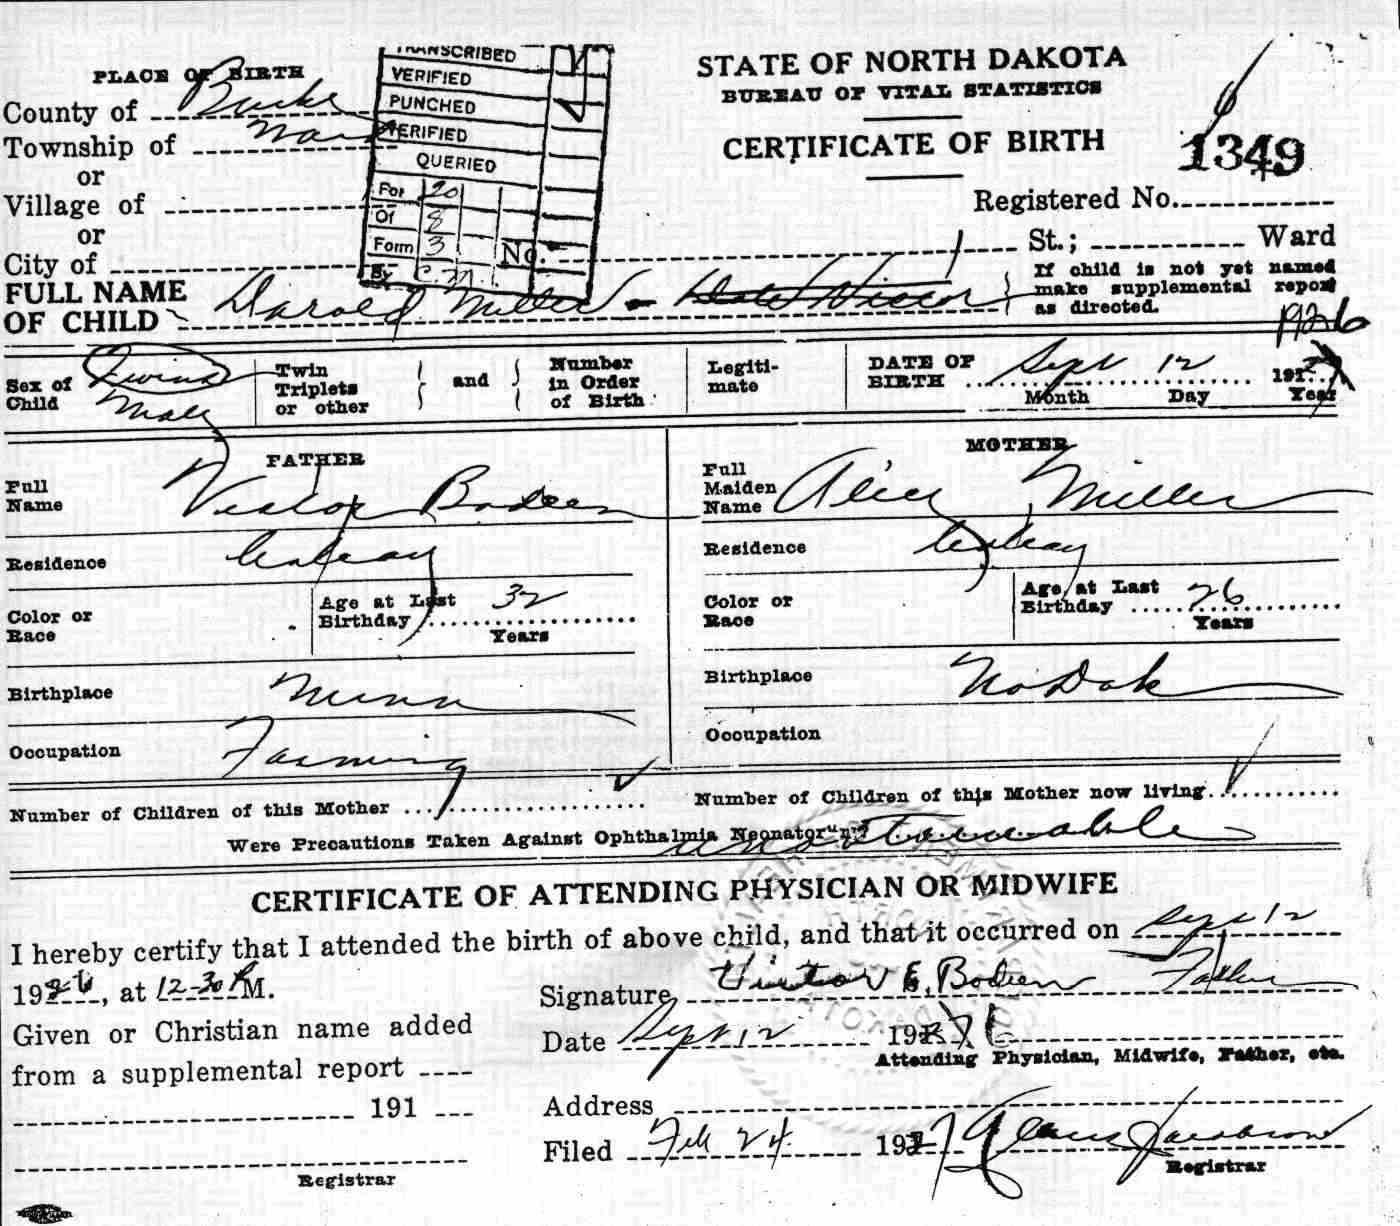 TRANSCRIBED
VERIFIED
PUNCHED
VERIFIED
QUERIED
For 20
Of 8
Form 3
By C.M
STATE OF NORTH DAKOTA
BUREAU OF VITAL STATISTICS
CERTIFICATE OF BIRTH
1349
Registered No.
PLACE OF BIRTH
County of Burke
Township of
or
Village of
or
City of
No. St.; Ward
FULL NAME OF CHILD Darold Miller - Victor
If child is not yet named
make supplemental report
as directed.
1926
Sex of Child Twins Male
Twin
Triplets
or other
and
Number
in Order
of Birth
Legiti-
mate
DATE OF BIRTH Sept 12 191
Month Day Year
FATHER
Full Name Victor Bodeen
Residence
Color or Race
Age at Last Birthday 32
Years
Birthplace Minn
Occupation Farming
MOTHER
Full Maiden Name Alice Miller
Residence
Color or Race
Age at Last Birthday 26
Years
Birthplace No Dak
Occupation
Number of Children of this Mother
Number of Children of this Mother now living
Were Precautions Taken Against Ophthalmia Neonatorum
CERTIFICATE OF ATTENDING PHYSICIAN OR MIDWIFE
I hereby certify that I attended the birth of above child, and that it occurred on Sept 12
1926, at 12-30 P M.
Signature Victor E. Bodeen Father
Given or Christian name added
Date Sept 12 192 6
Attending Physician, Midwife, Father, etc.
from a supplemental report
191
Address
Filed Feb 24. 1927 Jacobson
Registrar
Registrar